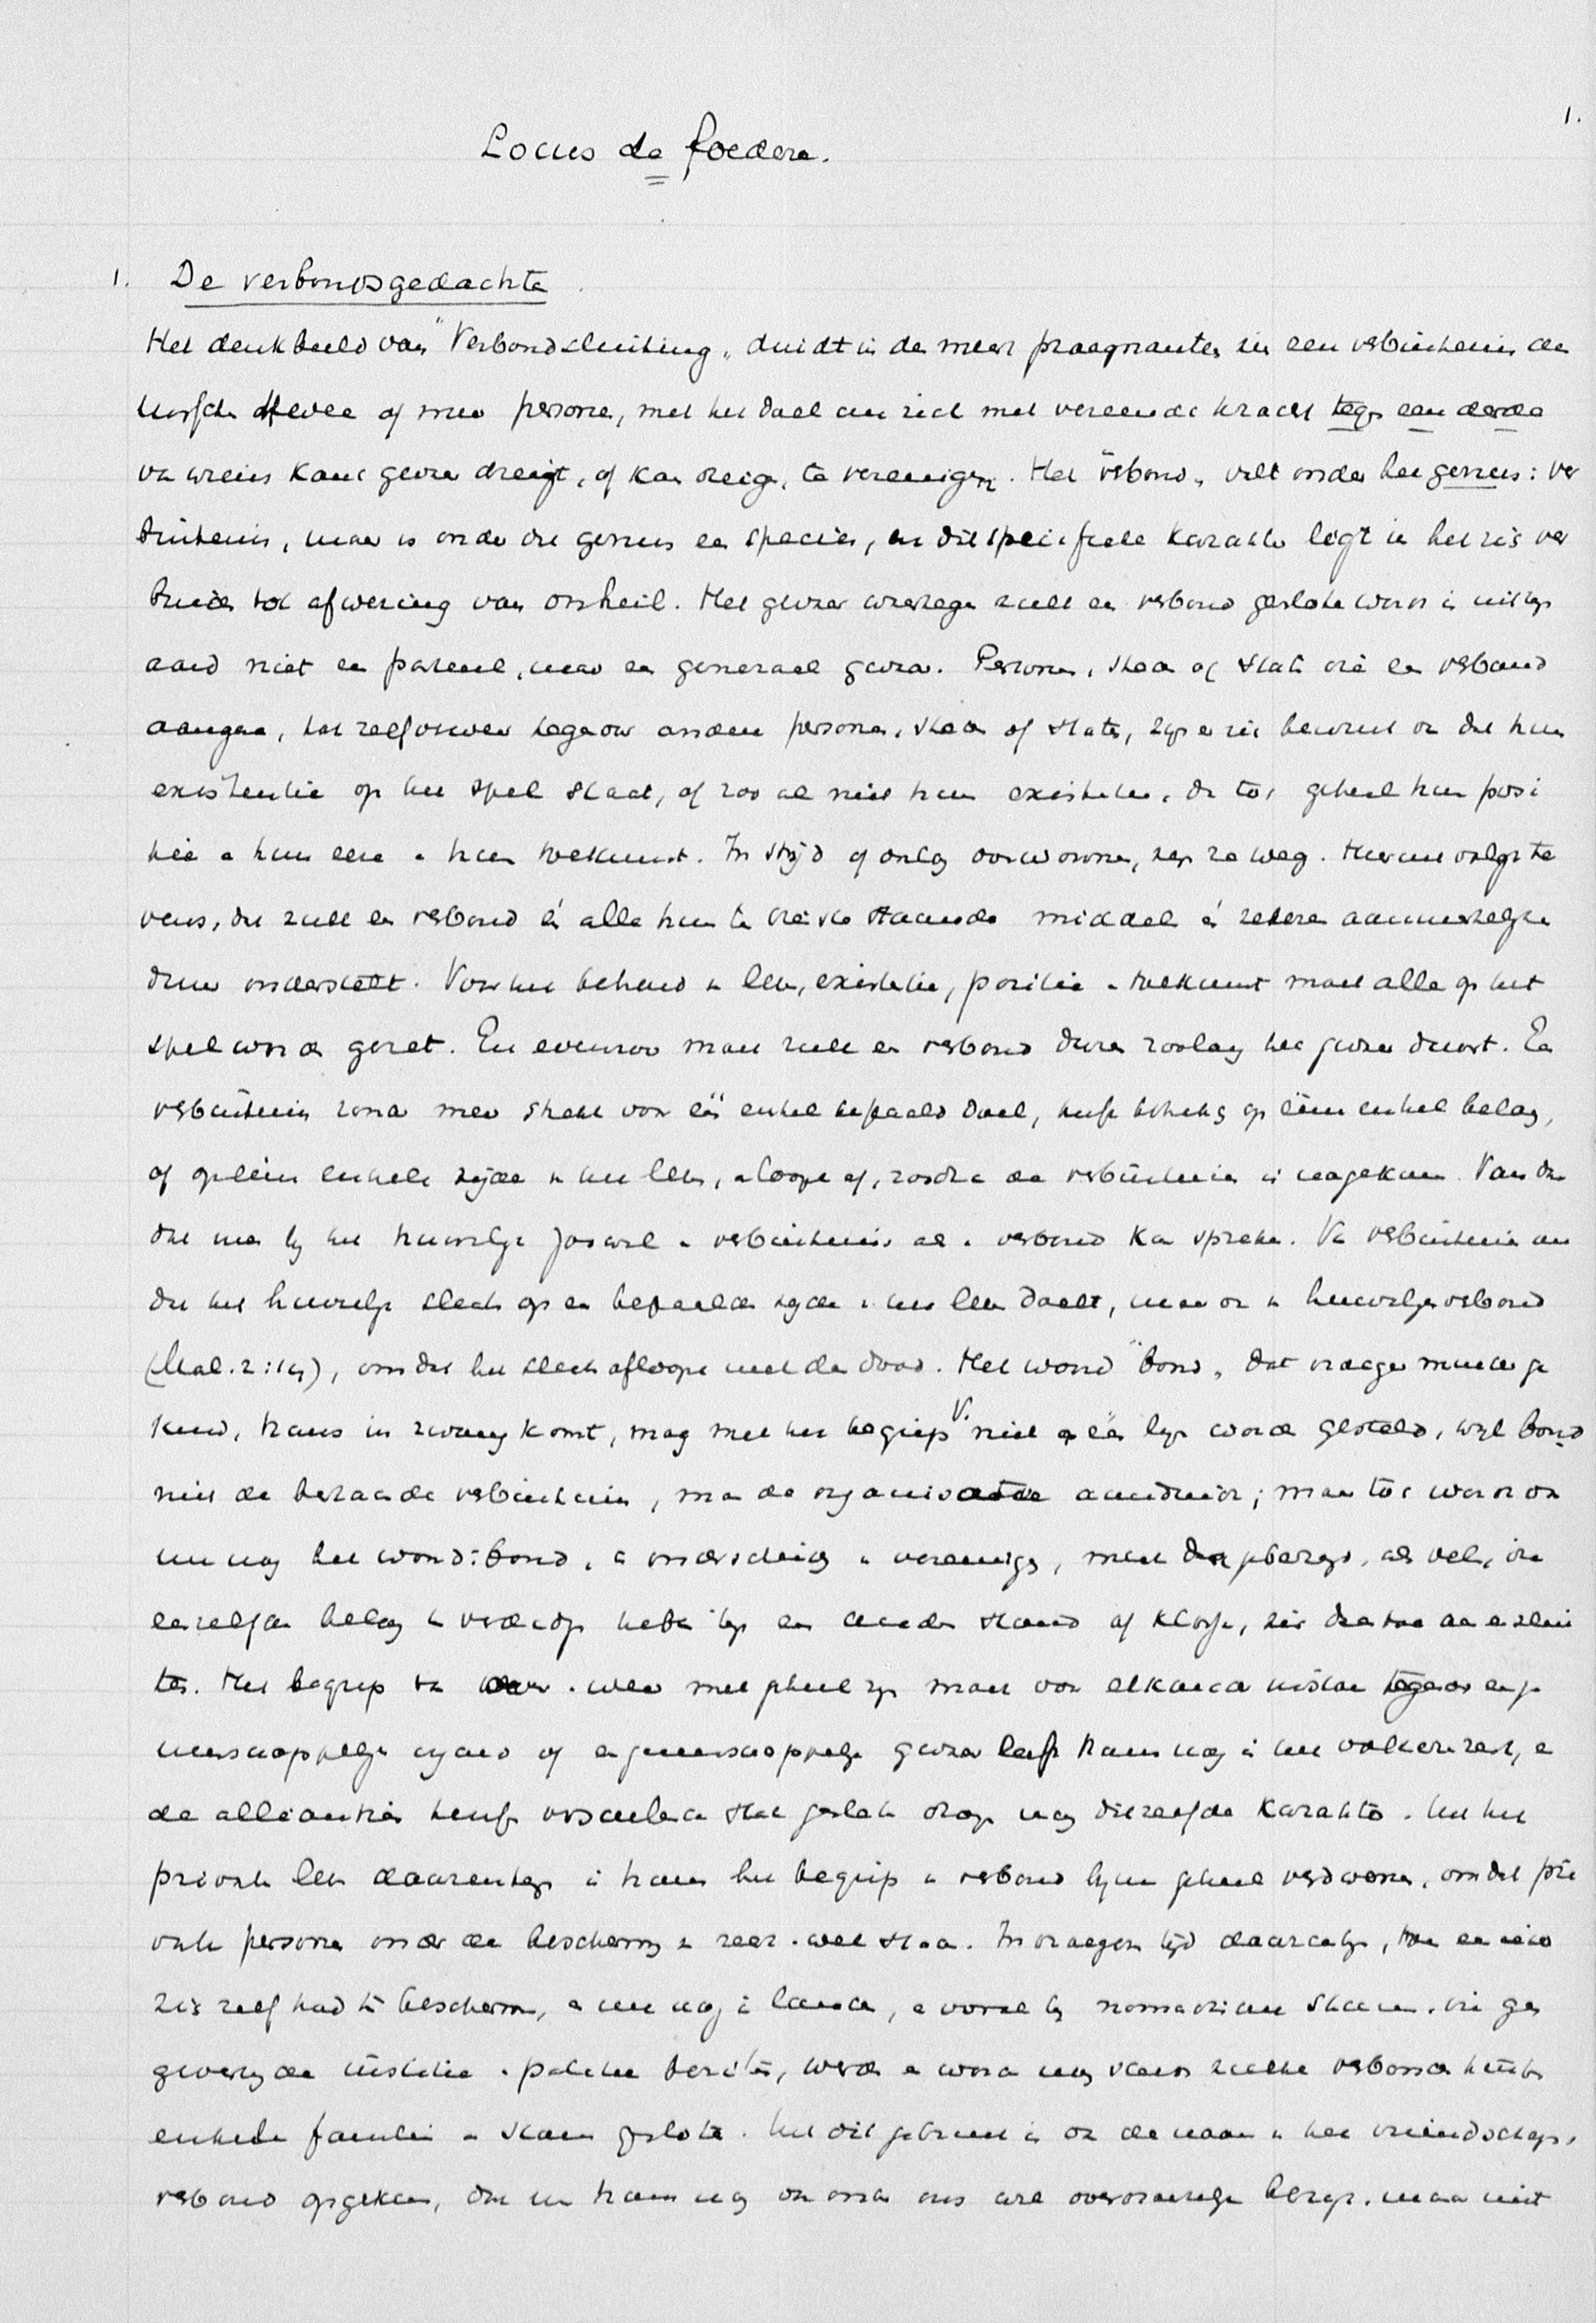 1.
Locus de foedere.
1. De verbondsgedachte.
Het denkbeeld van "Verbondsluiting" duidt in de meer praegnanten zin een verbintenis
tusschen twee of meer personen, met het doel om zich met vereende kracht tegen een derde
van wiens kant gevaar dreigt, of kan dreigen, te vereenigen. Het verbond, valt onder het genus: ver
bintenis, maar is onder die genus een species, en dit specifieke karakter ligt in het zich ver
binden tot afwering van onheil. Het gevaar waartegen zulk een verbond gesloten wordt is uit zijn
aard niet een partieel, maar een generaal gevaar. Personen, of staten die een verbond
aangaan, tegenover andere personen, of staten, zijn er zich bewust van dat hun
existentie op het spel staat, of zoo al niet hun existentie, dan toch geheel hun posi
tie en hun eere en hun toekomst. In strijd of oorlog overwonnen, zijn ze weg. Hieruit volgt te
vens, dat zulk een verbond alle hun ten dienste staande middelen zekere aanmerkelijke
duur onderstelt. Voor het behoud van leven, existentie, positie en toekomst moet alles op het
spel worden gezet. En evenzoo moet zulk een verbond duren zoolang het gevaar duurt. Een
verbintenis zonder meer strekt voor één enkel bepaald doel, heeft betrekking op één enkel belang,
of op één enkele zijde van het leven, en loopt af, zoodra de verbintenis is nagekomen. Van daar
dat men bij het huwelijk zoowel van verbintenis als van verbond kan spreken. Van verbintenis om
dat het huwelijk slechts op een bepaalde zijde van het leven doelt, maar ook van huwelijksverbond
(Mal. 2:14), omdat het slechts afloopt met de dood. Het woord "bond", dat vroeger minder ge
kend, thans in zwang komt, mag met het begrip V. niet op één lijn worden gesteld, wijl bond
niet de bestaande verbintenis, maar de organisatie aanduidt; maar toch wordt ook
nu nog het woord: bond, in onderscheiding van vereeniging, meest als velen, die
eenzelfde belang te verdedigen hebben tegen een anderen stand of klasse, zich daartoe aaneenslui
ten. Het begrip van met geheel zijn macht voor elkander instaan tegenover een ge
meenschappelijken vijand of een gemeenschappelijk gevaar leeft thans nog in het volkerenrecht, en
de alliantiën tusschen verschillende staten gesloten dragen nog ditzelfde karakter. In het
private leven daarentegen is thans het begrip van verbond bijna geheel verdwenen, omdat pri
vate personen onder de bescherming van recht en wet staan. In vroegeren tijd daarentegen, toen een ieder
zich zelf had te beschermen, en nu nog in landen, en vooral bij nomadische stammen, die geen
geregelde justitie en politie bezitten, werden en worden nog steeds zulke verbonden tusschen
enkele families en stammen gesloten. Uit dit gebruik is ook de naam van het vriendschaps-
verbond opgekomen, dat nu thans nog onder ons wel overdrachtelijk bezigt, maar niet